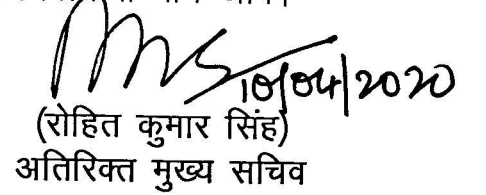 10/04/2020
(रोहित कुमार सिंह)
अतिरिक्त मुख्य सचिव